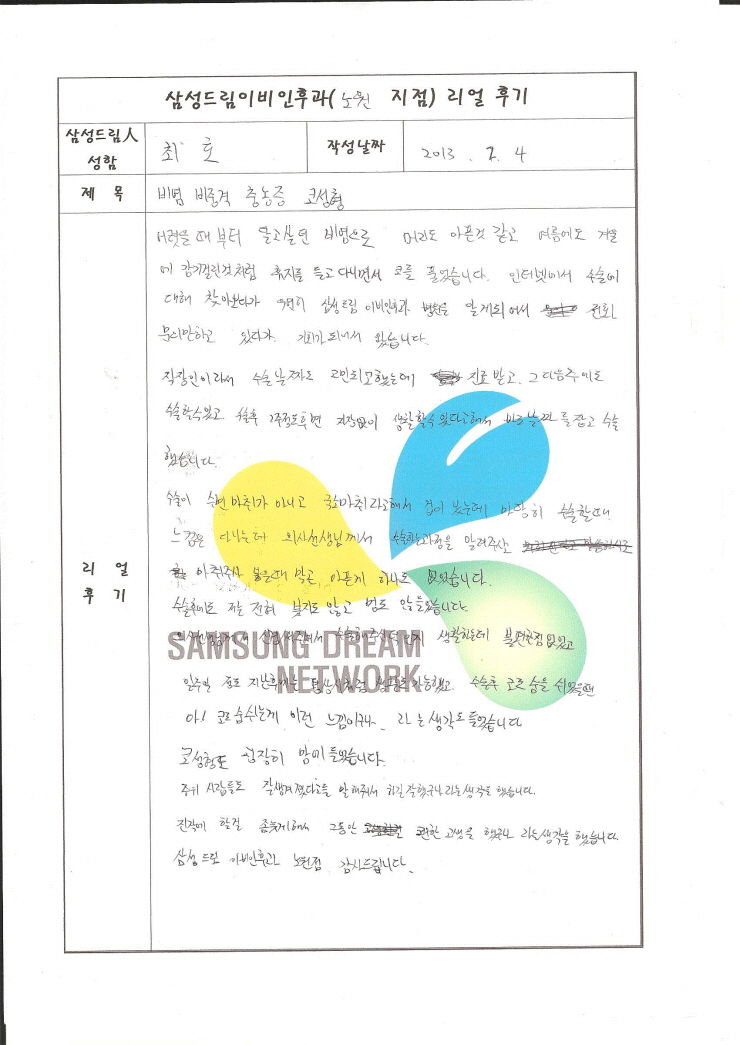 삼성드림이비인후과(노원 지점) 리얼 후기
삼성드림人 성함
최 호
작성날짜
2013. 7. 4
제 목
비염 비중격 축농증 코성형
리 얼 후 기
어렸을때부터 달고살던 비염으로 머리도 아픈것 같고 여름에도 겨울
에 감기걸린것처럼 휴지를 들고다니면서 코를 풀었습니다. 인터넷에서 수술에
대해 찾아보다가 우연히 삼성드림 이비인후과 병원을 알게되어서 전화
문의만하고 있다가 기회가되어서 왔습니다.
직장인이라서 수술날짜도 고민되긴했는데 진료받고 그다음주에도
수술할수있고 수술후 1주정도후면 지장없이 생활할수 있다고해서 바로날짜를잡고 수술
했습니다.
수술이 수면마취가 아니고 국소마취라고해서 겁이 났는데 마땅히 수술할때
느낌은 나는데 의사선생님께서 수술하는과정을 알려주상
마취주사 놓을때 빼곤 아픈게 하나도 없었습니다.
수술후에도 저는 전혀 붓지도 않고 멍도 않들었습니다
수술해주셨는지 생활하는데 불편한점없었고
SAMSUNG DREAM
NETWORK
일주일 정도 지난후에는 일상생활 가능했고 수술후 코로숨을 쉬었을땐
아! 코로숨쉬는게 이런 느낌이구나. 라는생각도들었습니다
코성형도 굉장히 맘에들었습니다.
주위 사람들도 잘생겨졌다고들 말해줘서 하길잘했구나라는생각을 했습니다.
진작에 할걸 좀늦게해서 그동안 괜한 고생을 했구나 라는생각을 했습니다.
삼성드림 이비인후과 노원점 감사드립니다.